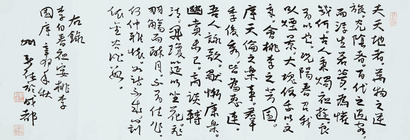 夫天地者萬物之逆
旅光陰者百代之過客
而浮生若夢為歡
幾何古人秉燭夜遊良
有以也況陽春召我
以煙景大塊假我以文
章會桃李芳園
序天倫之樂事群
季俊秀皆為惠連
吾人詠歌獨慚康樂
幽賞未已高談轉
清瓊筵以坐花飛
羽觴而醉月不有佳作
何伸雅懷如詩不成罰
依金谷酒數
右錄
李白春夜宴桃李
園序
於成都